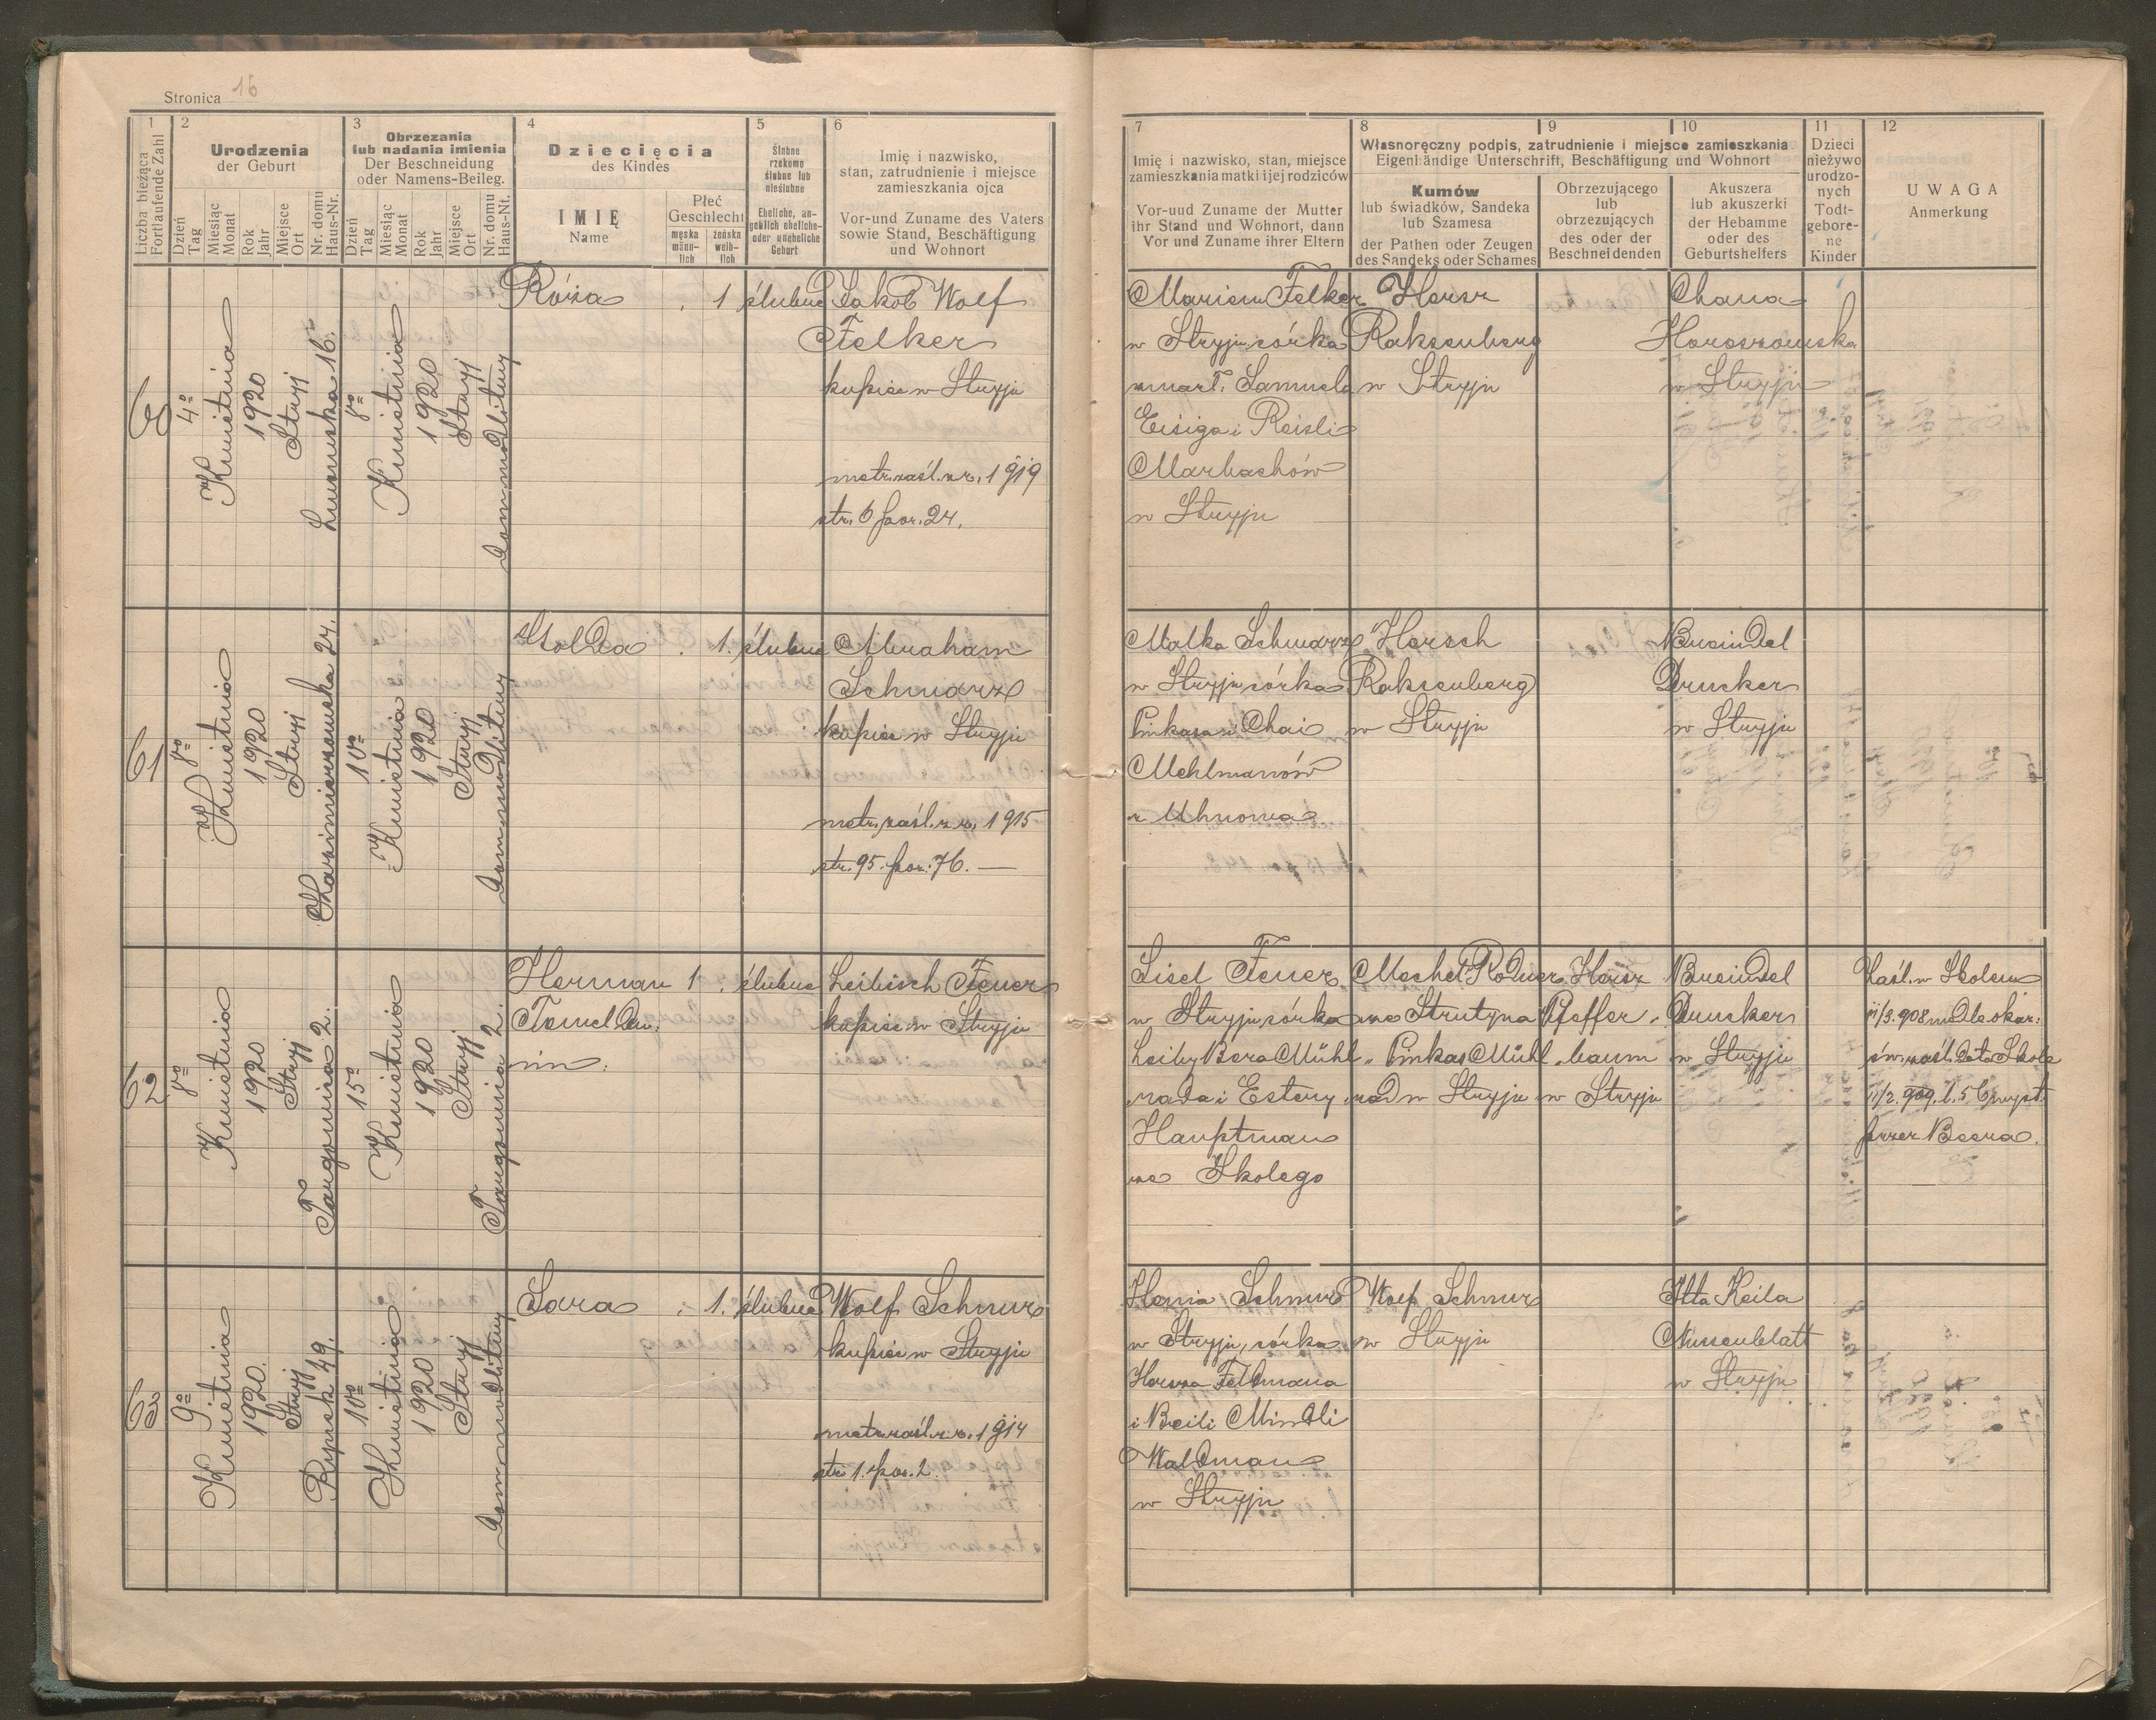 Stronica 16
1
Liczba bieżąca
Fortlaufende Zahl
2
Urodzenia
der Geburt
Dzień
Tag
Miesiąc
Monat
Rok
Jahr
Miejsce
Ort
Nr. domu
Haus-Nr.
3
Obrzezania
lub nadania imienia
Der Beschneidung
oder Namens-Beileg.
Dzień
Tag
Miesiąc
Monat
Rok
Jahr
Miejsce
Ort
Nr. domu
Haus-Nt.
4
Dziecięcia
des Kindes
IMIĘ
Name
Płeć
Geschlecht
męska
männ-
lich
żeńska
weib-
lich
5
Ślubne
rzekomo
ślubne lub
nieślubne
Eheliche, an-
geblich eheliche-
oder uneheliche
Geburt
6
Imię i nazwisko,
stan, zatrudnienie i miejsce
zamieszkania ojca
Vor-und Zuname des Vaters
sowie Stand, Beschäftigung
und Wohnort
7
Imię i nazwisko, stan, miejsce
zamieszkania matki i jej rodziców
Vor-uud Zuname der Mutter
ihr Stand und Wohnort, dann
Vor und Zuname ihrer Eltern
8
9
10
Własnoręczny podpis, zatrudnienie i miejsce zamieszkania
Eigenhändige Unterschrift, Beschäftigung und Wohnort
Kumów
lub świadków, Sandeka
lub Szamesa
der Pathen oder Zeugen
des Sandeks oder Schames
Obrzezującego
lub
obrzezujących
des oder der
Beschneidenden
Akuszera
lub akuszerki
der Hebamme
oder des
Geburtshelfers
11
Dzieci
nieżywo
urodzo-
nych
Todt-
gebore-
ne
Kinder
12
UWAGA
Anmerkung
60
4º
Kwietnia
1920
Stryj
16.
8º
Kwietnia
1920
Stryj
dom modlitwy
Róża
1
ślubne
Jakob Wolf
Felker
kupiec w Stryju
metr. zaśl. z r. 1919
str. 6 poz. 24.
Mariem Felker
w Stryju córka
zmarł. Samuela
Eisiga i Reisli
Marbachów
w Stryju
Hersz
Raksenberg
w Stryju
Chana
Horoszowska
w Stryju
61
8º
Kwietnia
1920
Stryj
Kazimierzowska 24.
10º
Kwietnia
1920
Stryj
dom modlitwy
Golda
1.
ślubne
Abraham
Schwarz
kupiec w Stryju
metr. zaśl. z r. 1915
str. 95. poz. 76. —
Malka Schwarz
w Stryju córka
Pinkasa i Chai
Mehlmanów
z Uhnowa
Hersch
Raksenberg
w Stryju
Breindel
Drucker
w Stryju
62
8º
Kwietnia
1920
Stryj
Targowica 2.
15º
Kwietnia
1920
Stryj
Targowica 2.
Herman
1
ślubne
Leibisch Feuer
kupiec w Stryju
Lisel Feuer
w Stryju, córka
Leiby Bera Mühl
rada i Estery
Hauptman
ze Skolego
Mechel Rodner
ze Strutyna
Pinkas Mühl
rad w Stryju
Hersz
Pfeffer
baum
w Stryju
Breindel
Drucker
w Stryju
Zaśl. w Skolem
11/3. 908 wedle okaz:
św. zaśl. dato Skole
11/2. 909. l. 56 wyst.
przez Beera.
63
9º
Kwietnia
1920.
Stryj
Rynek 49.
10º
Kwietnia
1920
Stryj
dom modlitwy
Sara
1.
ślubne
Wolf Schnur
kupiec w Stryju
metr. zaśl. z r. 1914
str. 1. poz. 2.
Henia Schnur
w Stryju, córka
Hersza Feldmana
i Beili Mindli
Waldman
w Stryju
Wolf Schnur
w Stryju
Itta Keila
Nussenblatt
w Stryju